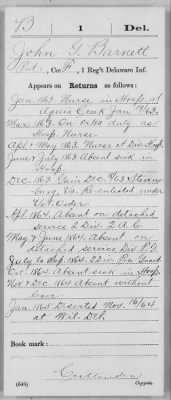 B | 1 | Del.
John G. Barnett
Pvt., Co. F, 1 Reg't Delaware Inf.
Appears on Returns as follows:
Jan. 1863. Nurse in Hosp. at
Aquia Creek Jan
Mar. 1863. On extra duty as
Hosp. Nurse.
Apl & May 1863. Nurse at Div. Hosp.
June & July 1863. Absent sick in
Hosp.
Dec. 1863. Gain Dec. /63
burg Va. Re enlisted under
Vet. Order.
Apl. 1864. Absent on detached
service 2 Div. 2 A.C.
May & June 1864. Absent on
detached service Div.
July to Sep. 1864. 2 Div. Pro. Guard
Oct. 1864. Absent sick in Hosp.
Nov & Dec 1864 Absent without
leave.
Jan. 1865 Deserted Nov. 16/64
at Wil. Del.
Book mark:
(546)
Copyist.